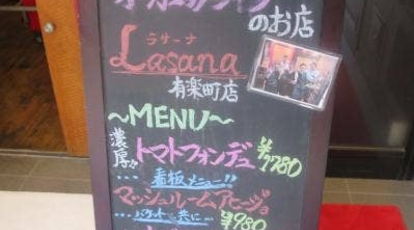 のお店
ラサーナ
Lasana
有楽町店
～MENU～
濃厚!! トマトフォンデュ ¥1780
･･･看板メニュー!!
マッシュルームアヒージョ
･･･バケットと共に･･･ ¥980